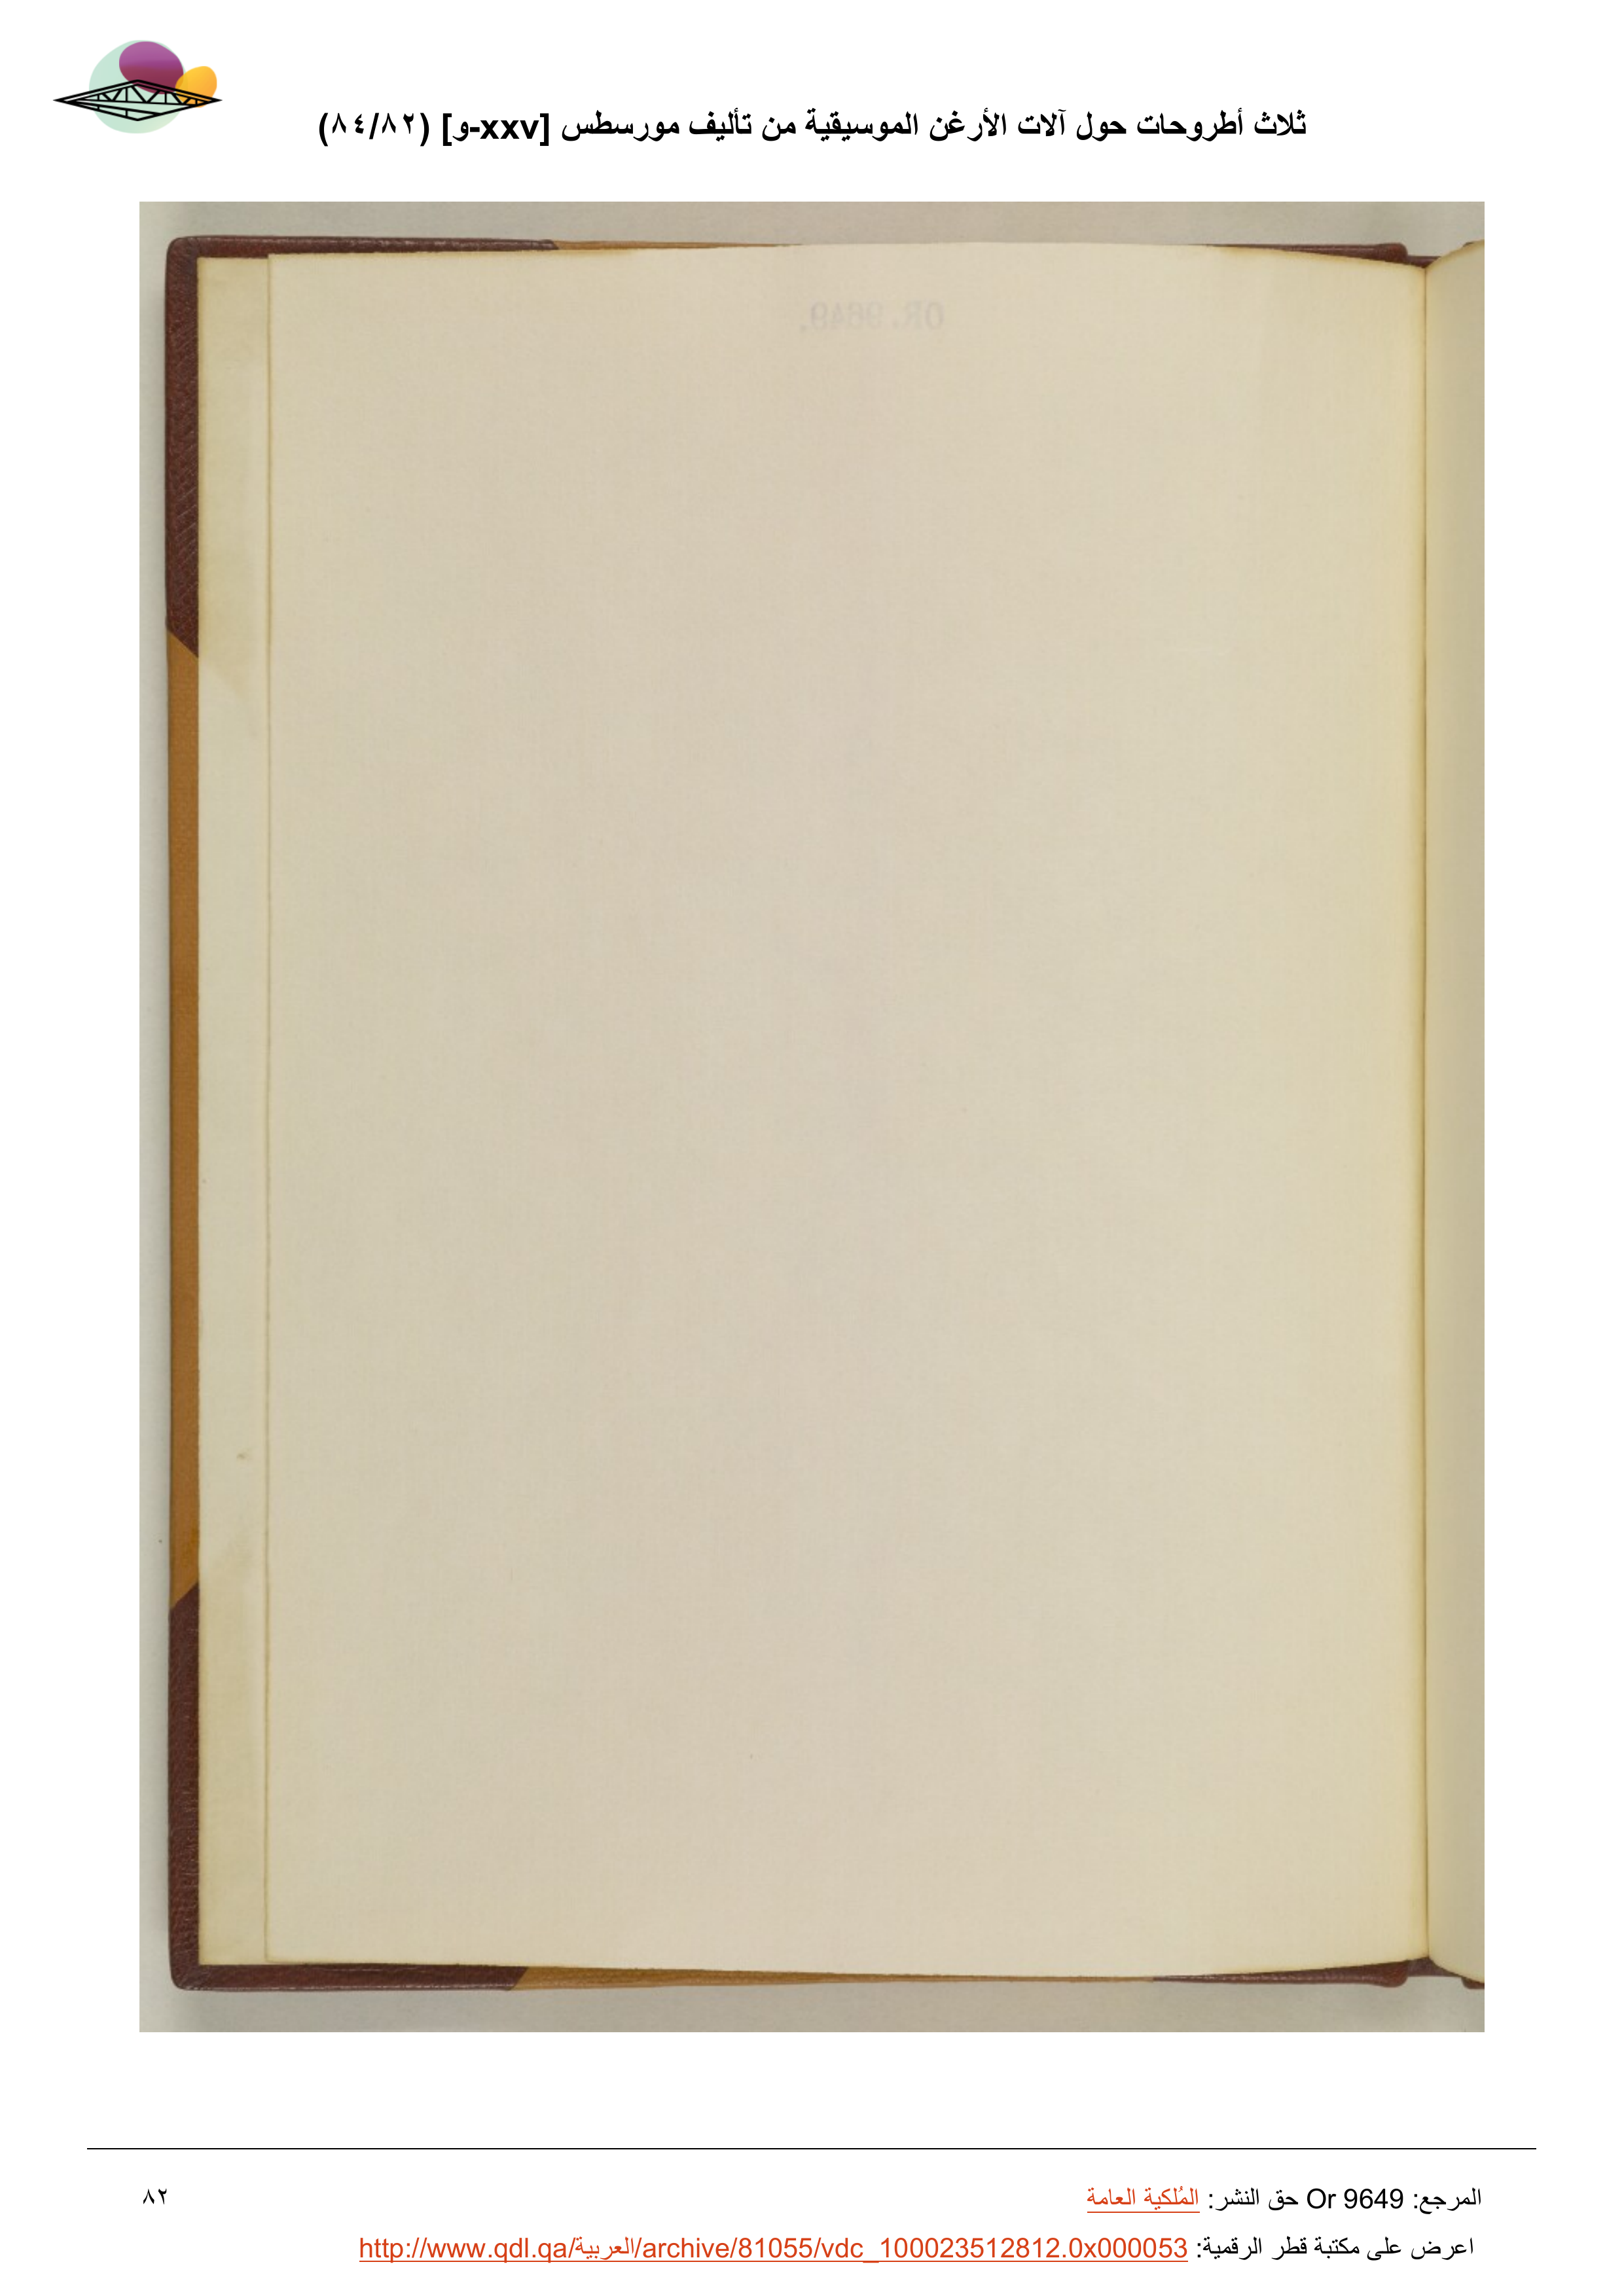 ثلاث أطروحات حول آلات الأرغن الموسيقية من تأليف مورسطس [xxv-و] (٨٤/٨٢)
OR. 9649.
المرجع: Or 9649 حق النشر: المُلكية العامة
٨٢
اعرض على مكتبة قطر الرقمية: http://www.qdl.qa/العربية/archive/81055/vdc_100023512812.0x000053